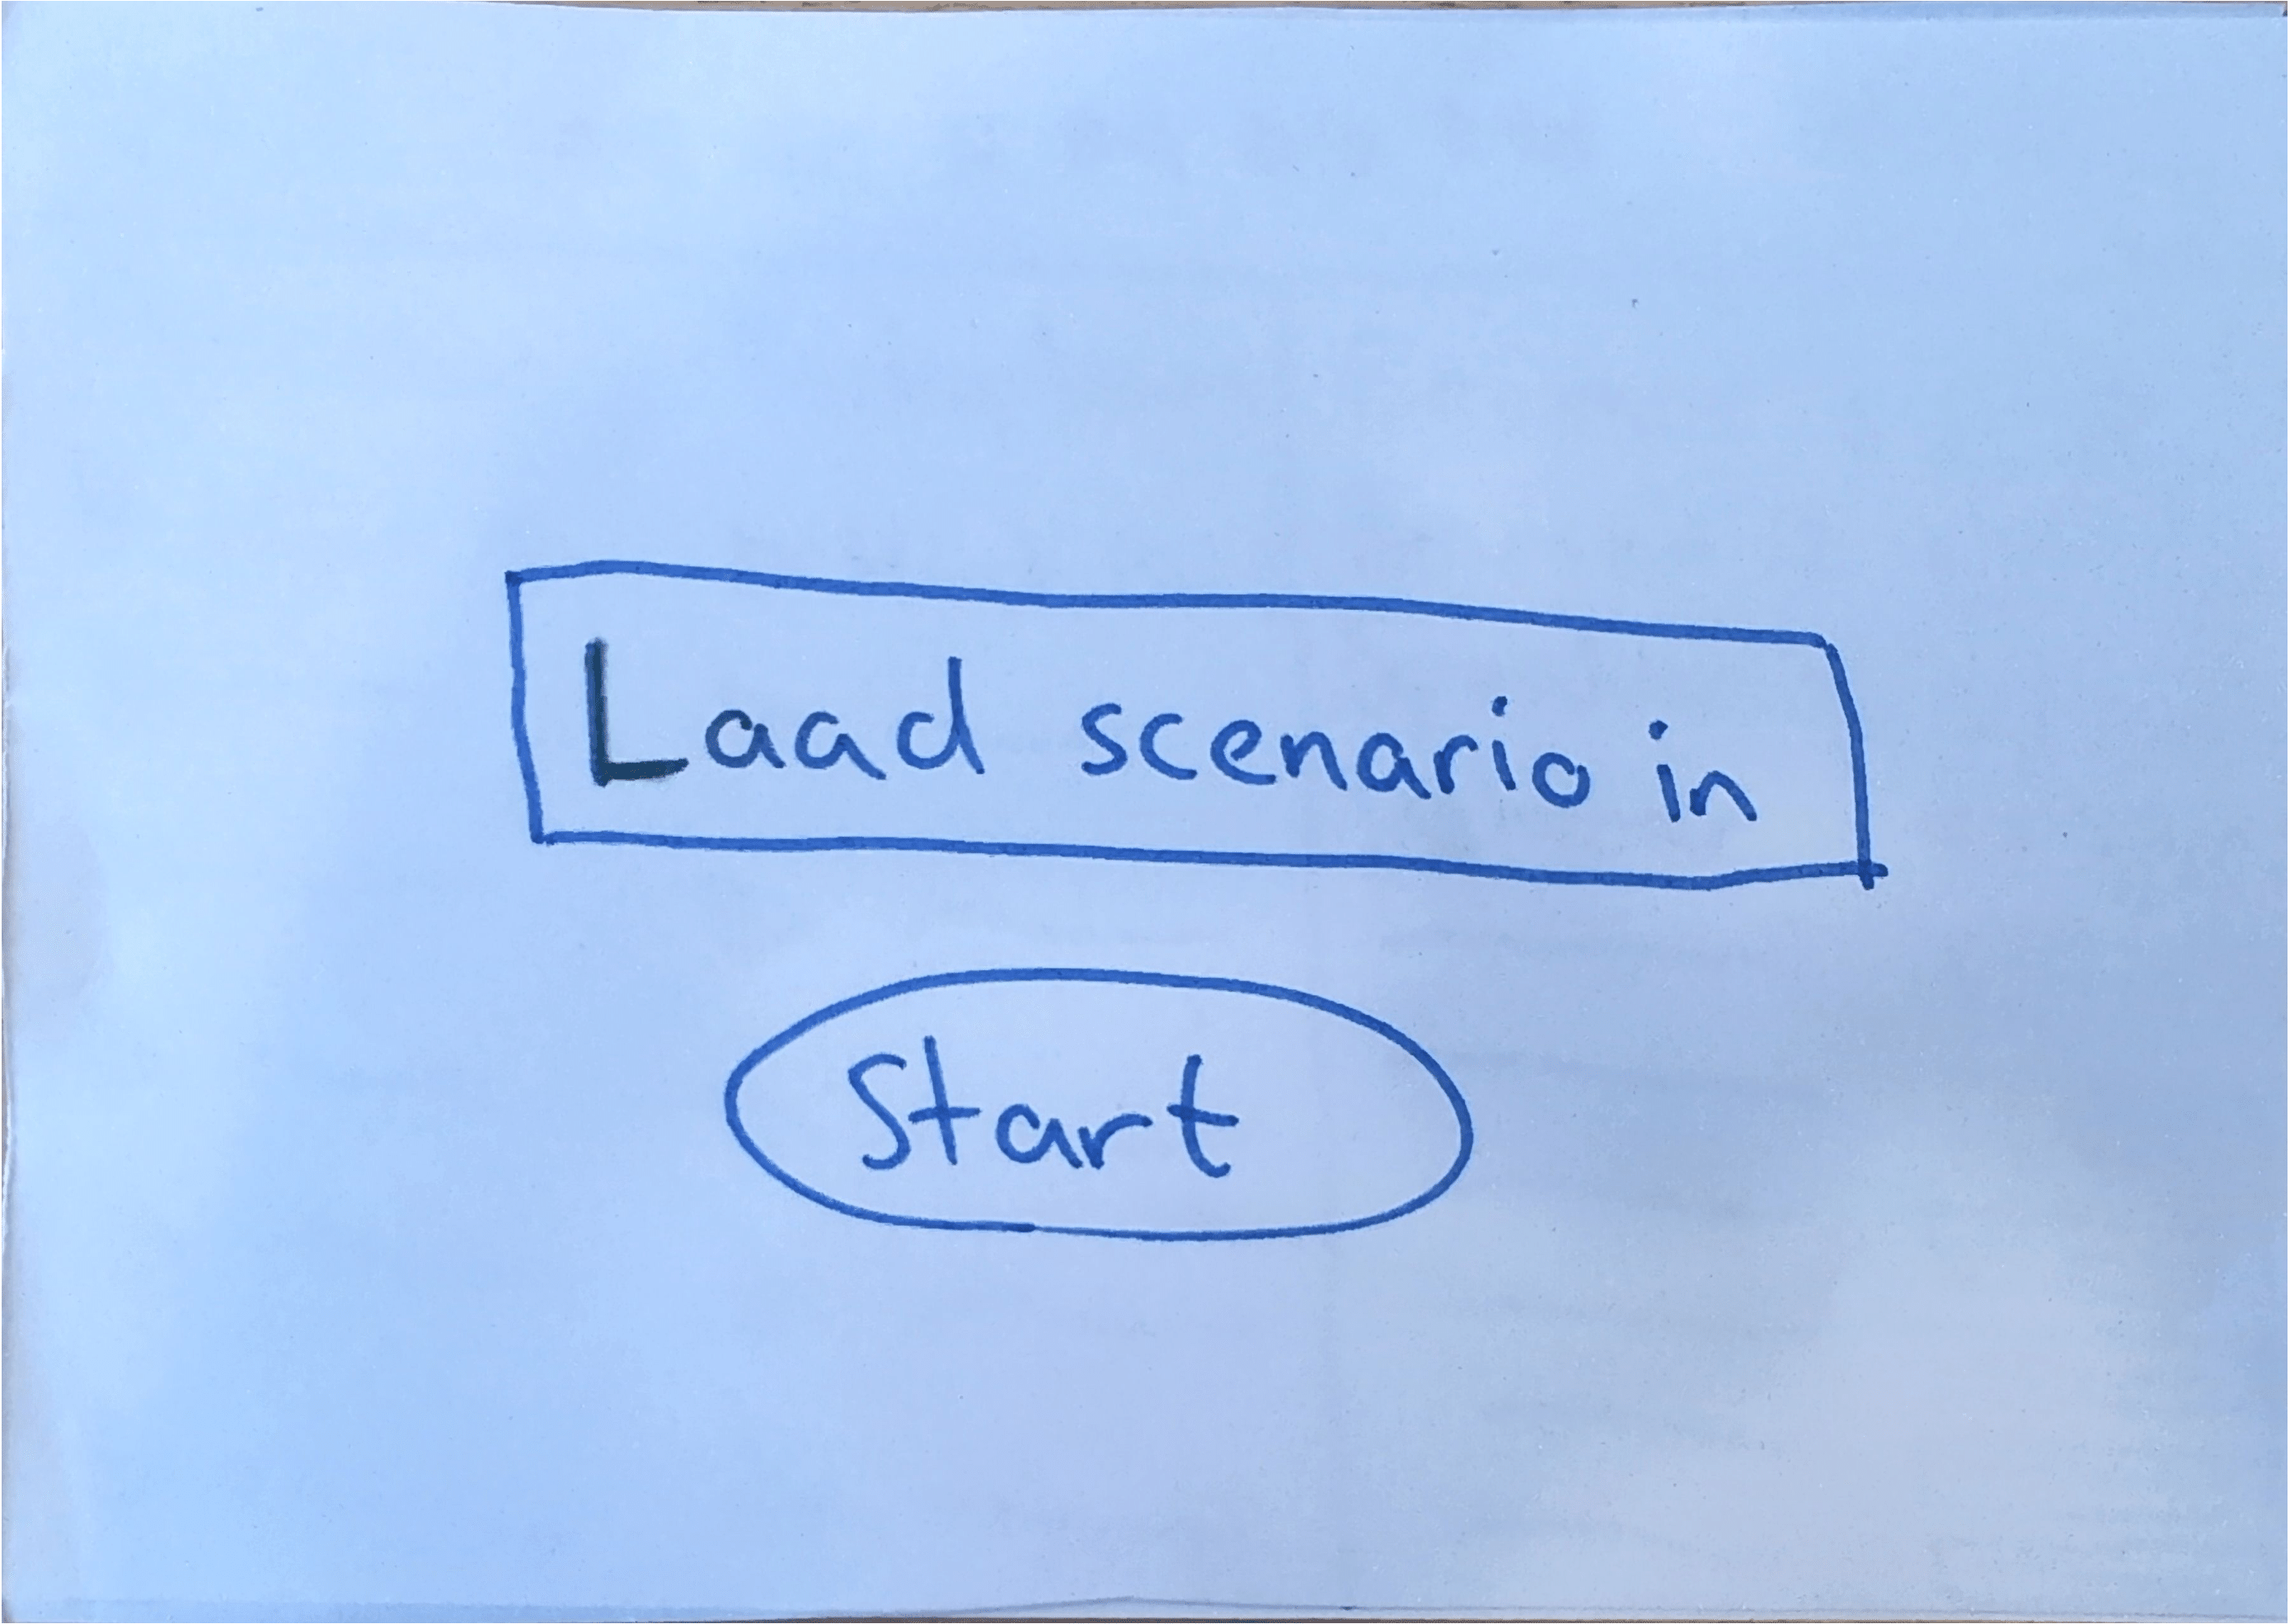 Laad scenario in
Start